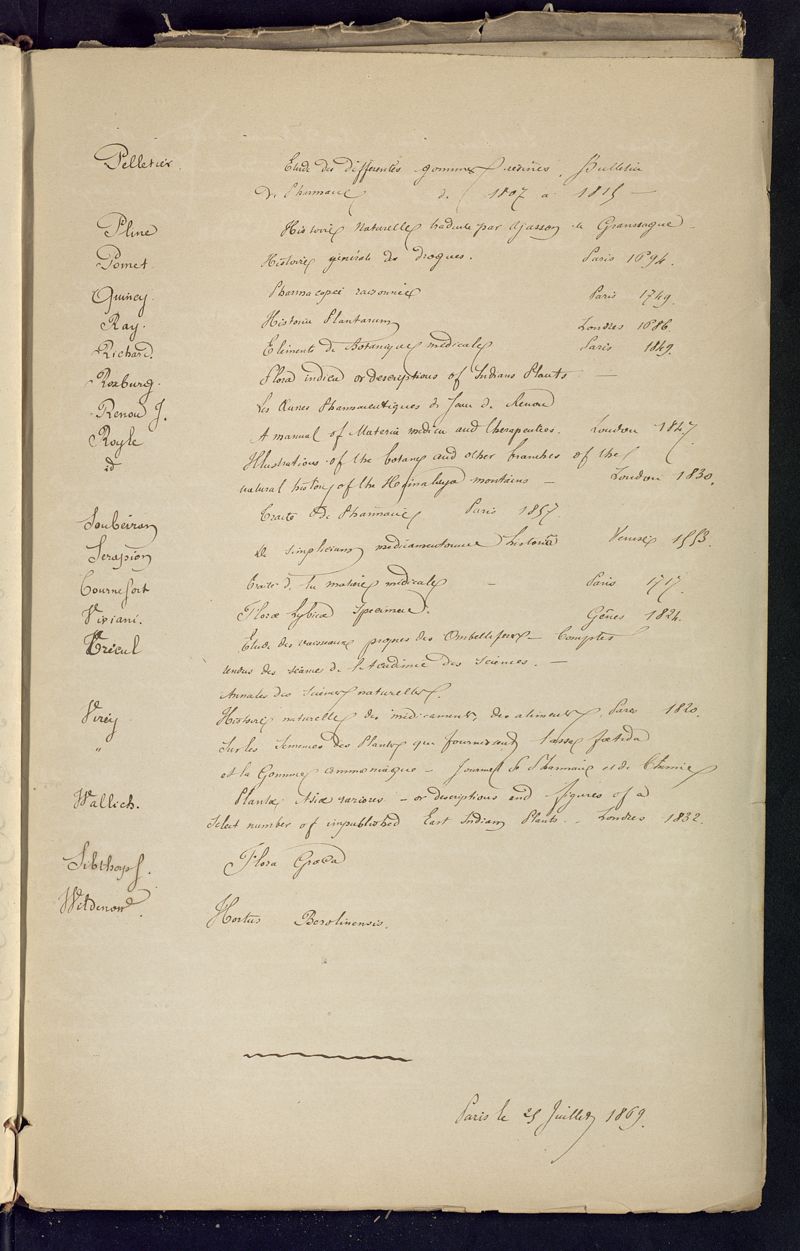 Pelletier. Etude des differentes gommes resines. Bulletin
de Pharmacie de 1807 a 1815 —
Pline Histoire Naturelle traduite par Ajasson de Gransagne —
Pomet Histoire générale des drogues. Paris 1694.
Quincy. Pharmacopée raisonnée Paris 1749.
Ray. Historia Plantarum Londres 1686.
Richard. Elements de Botanique médicale Paris 1849.
Roxburg. Flora indica or descriptions of Indians Plants —
Renou J. Les Œuvres Pharmaceutiques de Jean de Renou
Royle A manual of Materia medica and therapeutics. London 1847.
id Illustrations of the botany and other branches of the
natural history of the Heimalaya montains — London 1830.
Soubeiran Traité de Pharmacie Paris 1857.
Serapion De simplicium medicamentorum historia Venise 1553.
Tournefort Traité de la matière médicale — Paris 1717.
Viviani. Floræ Lybicæ Specimen. Gênes 1824.
Trécul Etude des vaisseaux propres des Ombellifères — Comptes
rendus des séances de l'Académie des Sciences. —
Annales des Sciences naturelles.
Virey Histoire naturelle des médicaments, des aliments Paris 1820.
" Sur les Semences des Plantes qui fournissent l'assa foetida
et la Gomme ammoniaque — Journal de Pharmacie et de Chimie
Wallich. Plantæ Asiæ rariores — or descriptions and figures of a
select number of unpublished East Indian Plants — Londres 1832.
Sibthorp. Flora Græca
Wildenow. Hortus Berolinensis.
Paris le 25 Juillet 1869.